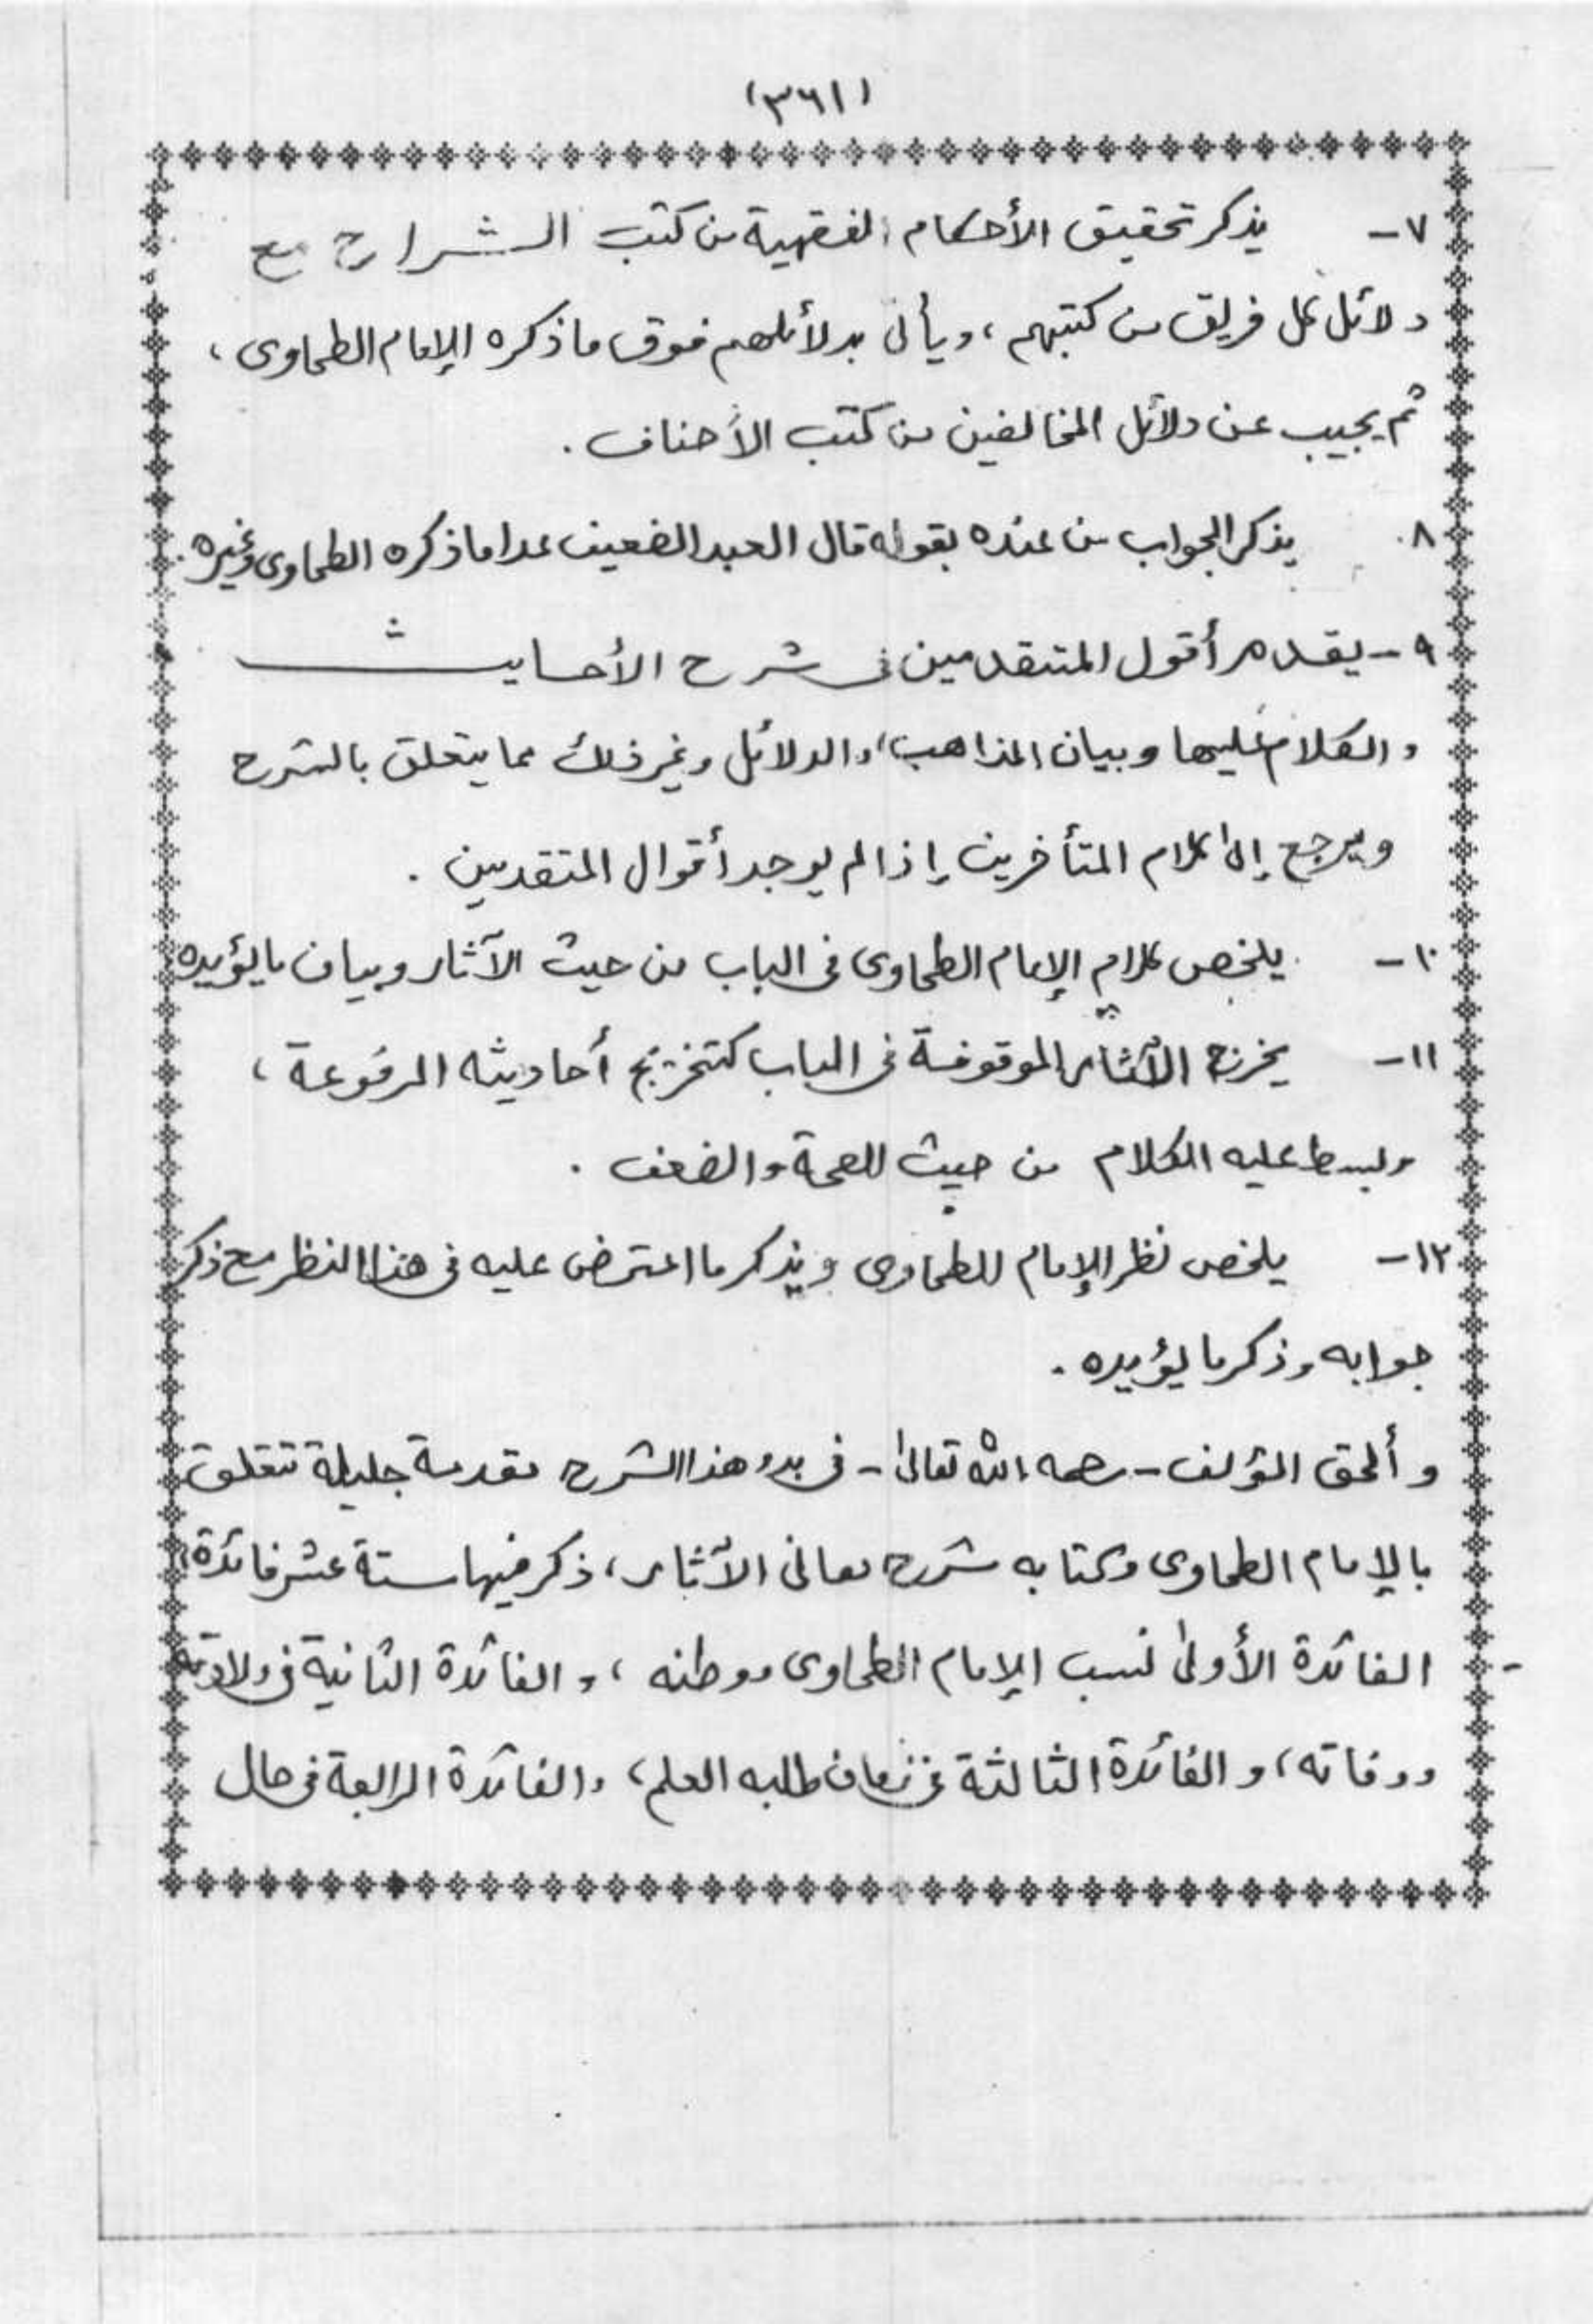 (٣٦١)
٧- يذكر تحقيق الأحكام الفقهية من كتب الشراح مع
دلائل كل فريق من كتبهم ، ويأتى بدلائلهم فوق ما ذكره الإمام الطحاوى ،
ثم يجيب عن دلائل المخالفين من كتب الأحناف .
٨. يذكر الجواب من عنده بقوله قال العبد الضعيف عدا ما ذكره الطحاوى وغيره .
٩- يقدم أقول المتقدمين فى شرح الأحاديث
والكلام عليها وبيان المذاهب ، والدلائل وغير ذلك مما يتعلق بالشرح
ويرجع إلى كلام المتأخرين إذا لم يوجد أقوال المتقدمين .
١٠- يلخص كلام الإمام الطحاوى فى الباب من حيث الآثار وبيان ما يؤيده
١١- يخرج الآثار الموقوفة فى الباب كتخريج أحاديثه المرفوعة ،
وبسط عليه الكلام من حيث الصحة والضعف .
١٢- يلخص نظر الإمام الطحاوى ويذكر ما اعترض عليه فى هذا النظر مع ذكر
جوابه وذكر ما يؤيده .
وألحق المؤلف - رحمه الله تعالى - فى بدء هذا الشرح مقدمة جليلة تتعلق
بالإمام الطحاوى وكتابه شرح معانى الآثار ، ذكر فيها ستة عشر فائدة ،
الفائدة الأولى نسب الإمام الطحاوى ووطنه ، والفائدة الثانية فى ولادته
ووفاته ، والفائدة الثالثة فى زمان طلبه العلم ، والفائدة الرابعة فى حال